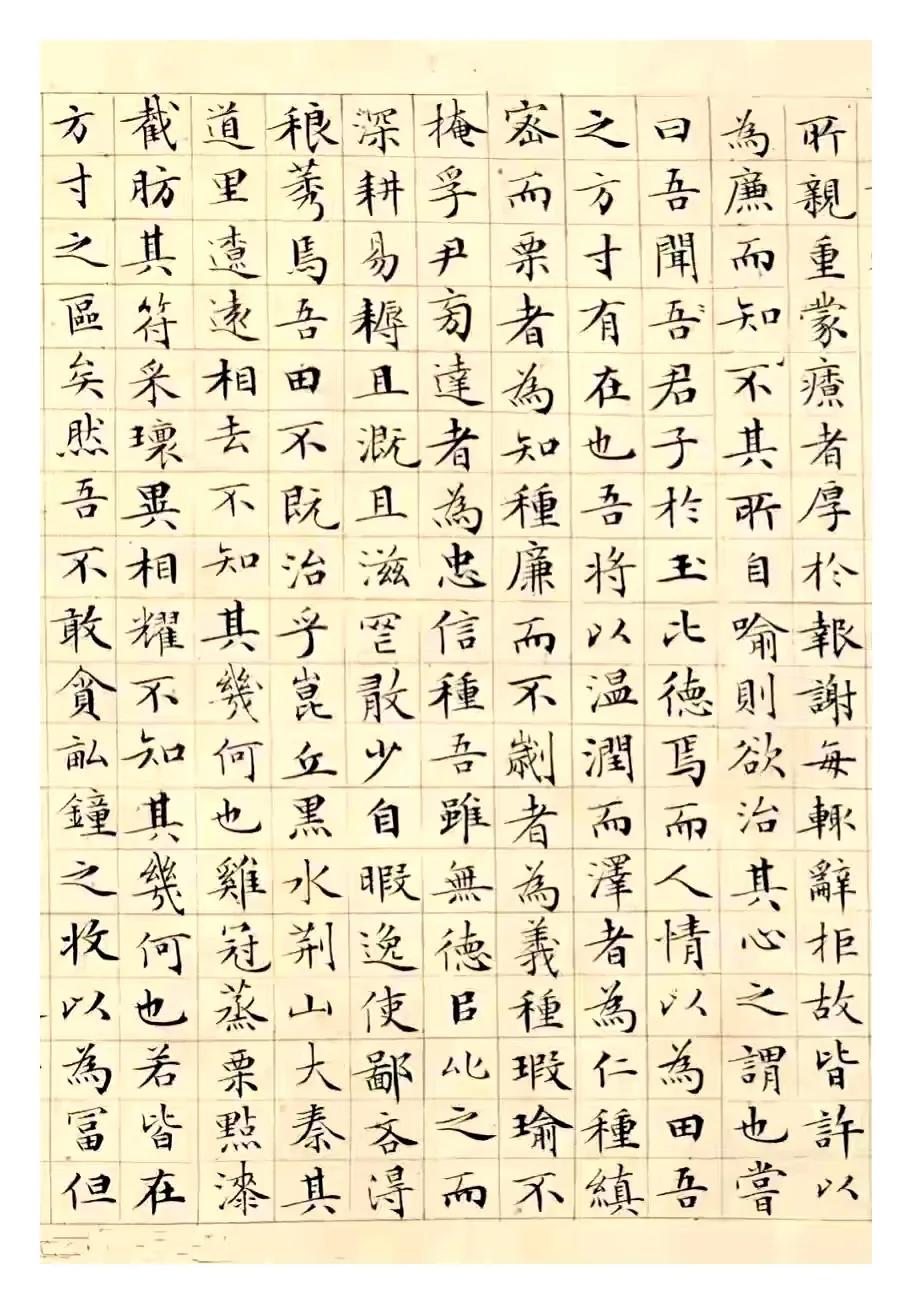 所親重蒙療者厚於報謝每輒辭拒故皆許以
為廉而知不其所自喻則欲治其心之謂也嘗
曰吾聞吾君子於玉比德焉而人情以為田吾
之方寸有在也吾将以温潤而澤者為仁種縝
密而栗者為知種廉而不劌者為義種瑕瑜不
掩孚尹旁達者為忠信種吾雖無德㠯此之而
深耕易耨且溉且滋敢少自暇逸使鄙吝得
稂莠焉吾田不既治乎崑丘黑水荆山大秦其
道里遼遠相去不知其幾何也雞冠蒸栗點漆
截肪其符采瓌異相耀不知其幾何也若皆在
方寸之區矣然吾不敢貪畝鐘之收以為富但